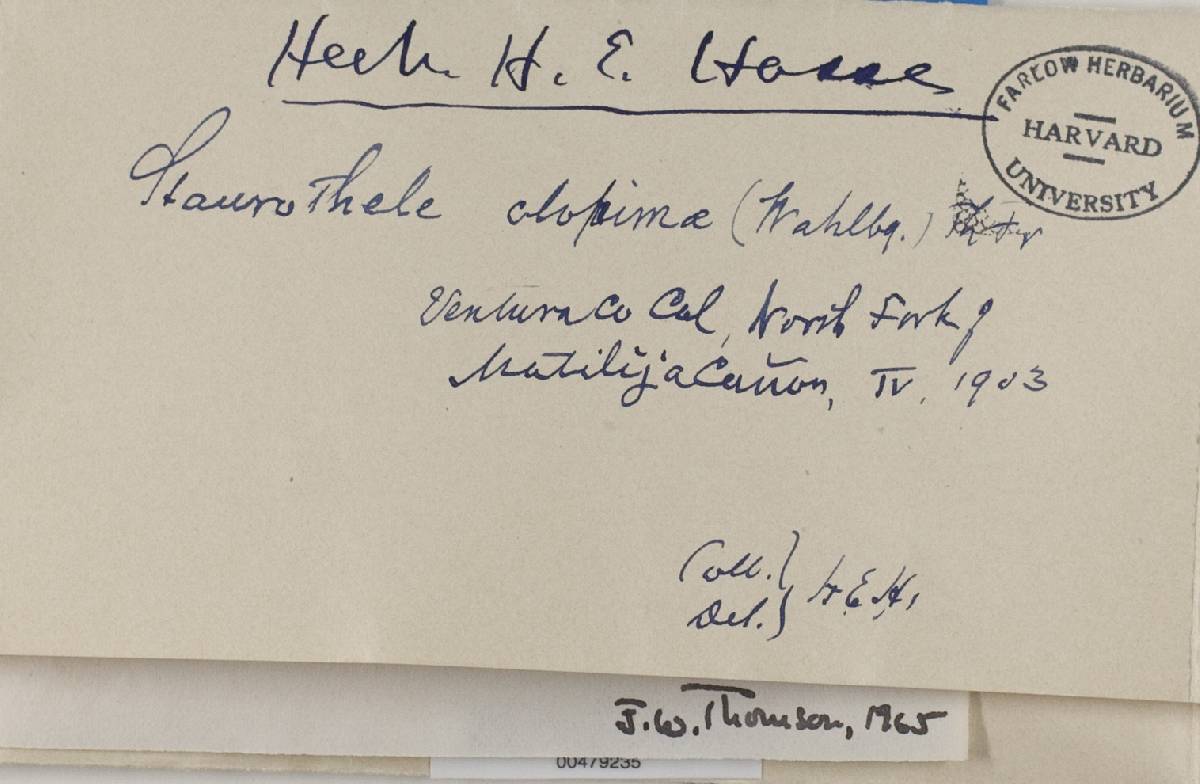 Herb. H. E. Hasse
FARLOW HERBARIUM
HARVARD
UNIVERSITY
Staurothele clopima (Wahlbg.)
Ventura Co Cal, North Fork of
Matilija Cañon, IV, 1903
Coll.} H.E.H.
Det.}
J.W. Thomson, 1965
00479235